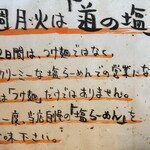 週月火は「道の塩」
2日間は、つけ麺ではなく
クリーミーな塩らーめんでの営業になり
は「つけ麺」だけではありません。
一度、当店自慢の「塩らーめん」を
味下さい。